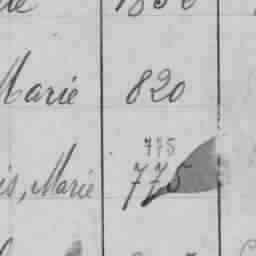 Marie 820
775
is, Marie 775